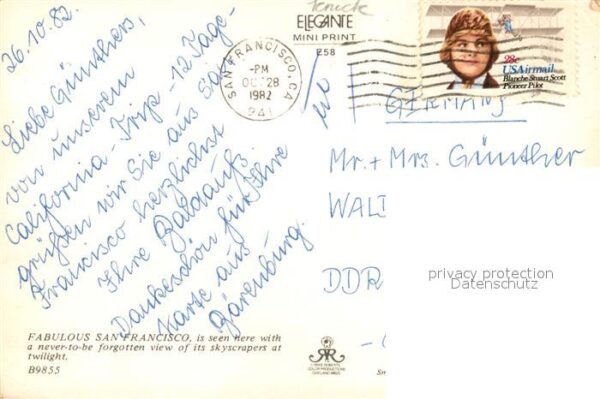 26.10.82.
Liebe Günthers,
von unserem 12 Tage-
California-Trip
grüßen wir Sie aus San
Francisco herzlichst
Ihre
Dankeschön für Ihre
Karte aus
FABULOUS SAN FRANCISCO, is seen here with
a never-to-be forgotten view of its skyscrapers at
twilight.
B9855
ELEGANTE
MINI PRINT
E58
SAN FRANCISCO, CA
PM
28
1982
941
28c
USAirmail
Blanche Stuart Scott
Pioneer Pilot
GERMANY
Mr. + Mrs. Günther
DDR
privacy protection
Datenschutz